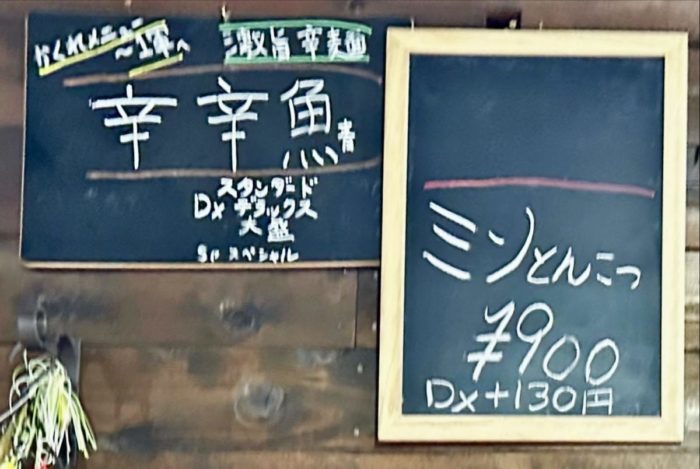 かくれメニュー
激旨 辛麺
辛辛魚
青
スタンダード
Dx デラックス
大盛
SP スペシャル
ミソとんこつ
¥900
Dx+130円